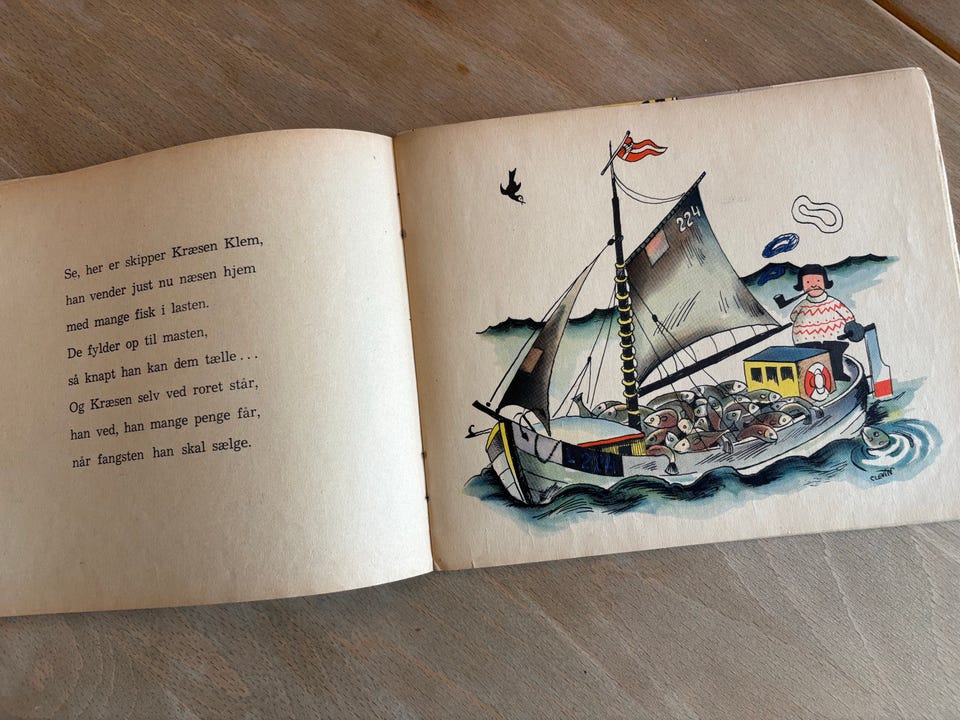 Se, her er skipper Kræsen Klem,
han vender just nu næsen hjem
med mange fisk i lasten.
De fylder op til masten,
så knapt han kan dem tælle...
Og Kræsen selv ved roret står,
han ved, han mange penge får,
når fangsten han skal sælge.
224
CLEVIN